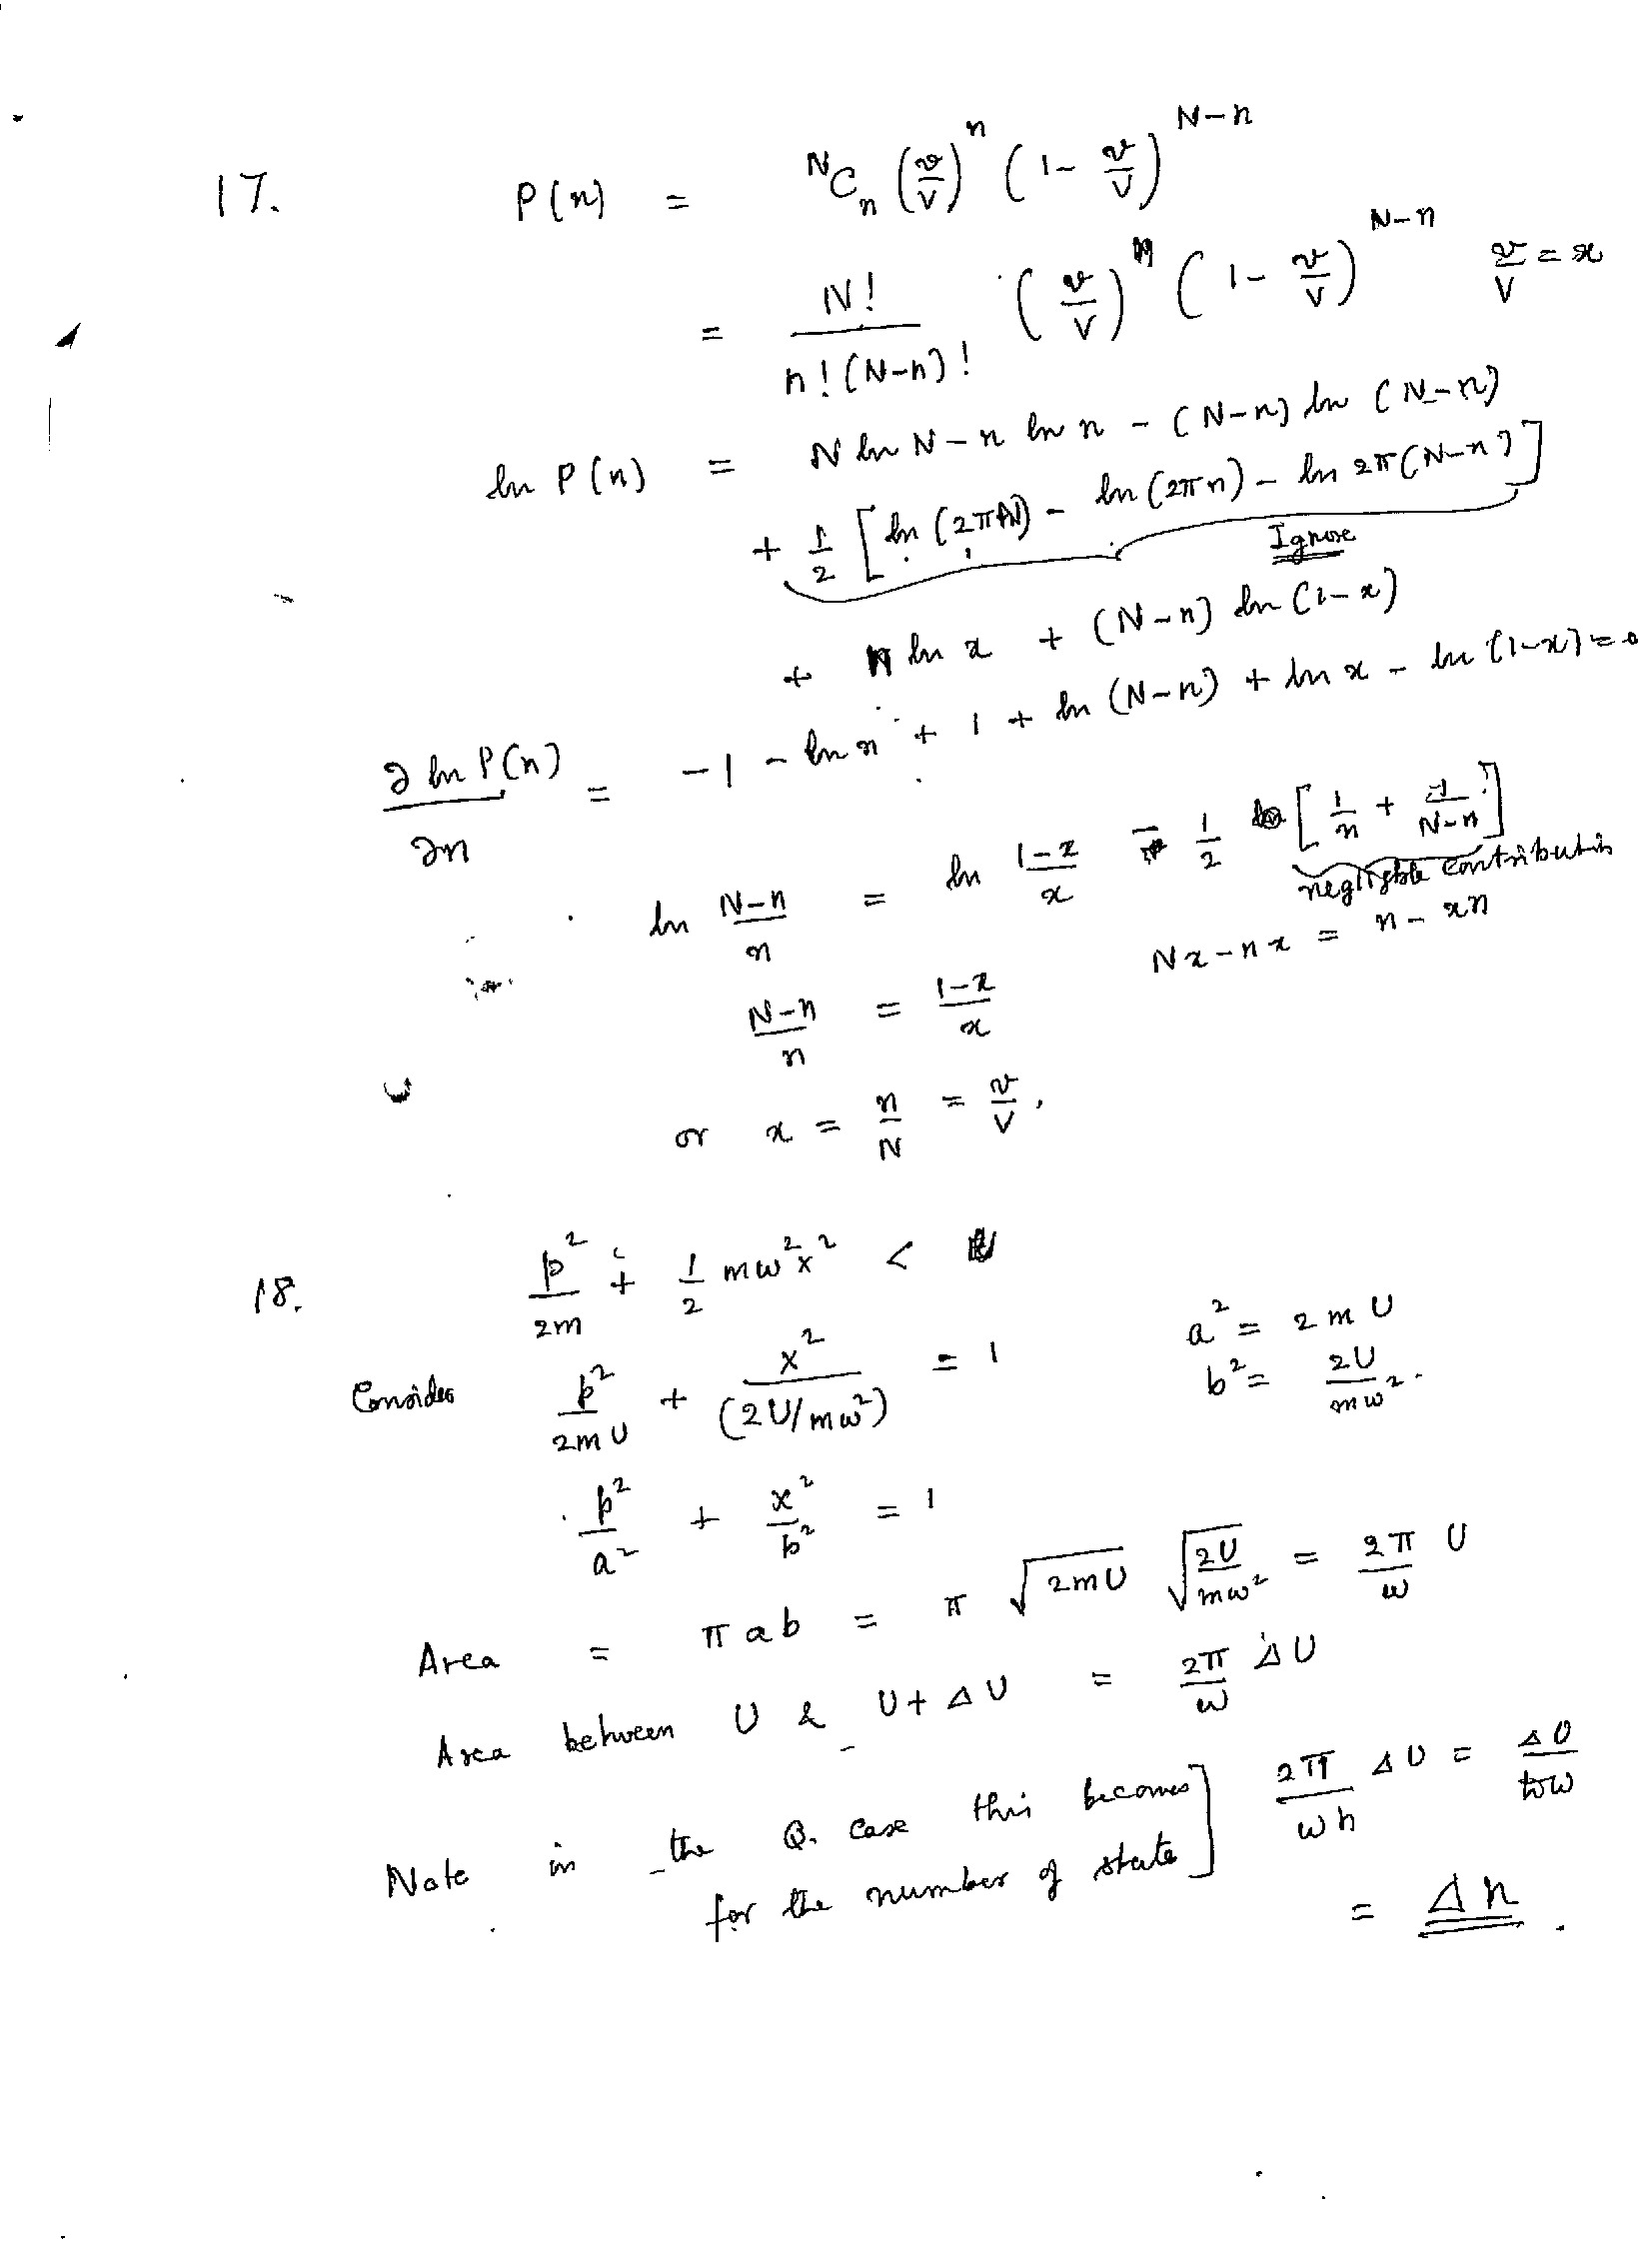 17. P(n) = ᴺCₙ (v/V)ⁿ (1 - v/V)^(N-n)
= N!/(n!(N-n)!) (v/V)ⁿ (1 - v/V)^(N-n) v/V = x
ln P(n) = N ln N - n ln n - (N-n) ln (N-n)
+ 1/2 [ln (2πN) - ln (2πn) - ln 2π(N-n)]
Ignore
+ n ln x + (N-n) ln (1-x)
∂ ln P(n)/∂n = -1 - ln n + 1 + ln (N-n) + ln x - ln (1-x) = 0
- 1/2 [1/n + -1/(N-n)]
negligible contribution
ln (N-n)/n = ln (1-x)/x
Nx - nx = n - xn
(N-n)/n = (1-x)/x
or x = n/N = v/V.
18. p²/2m + 1/2 mω²x² < U
Consider p²/2mU + x²/(2U/mω²) = 1 a² = 2mU
b² = 2U/mω².
p²/a² + x²/b² = 1
Area = πab = π √(2mU) √(2U/mω²) = 2π/ω U
Area between U & U + ΔU = 2π/ω ΔU
Note in the Q. case this becomes
for the number of state] 2π/ωh ΔU = ΔU/ħω
= Δn.